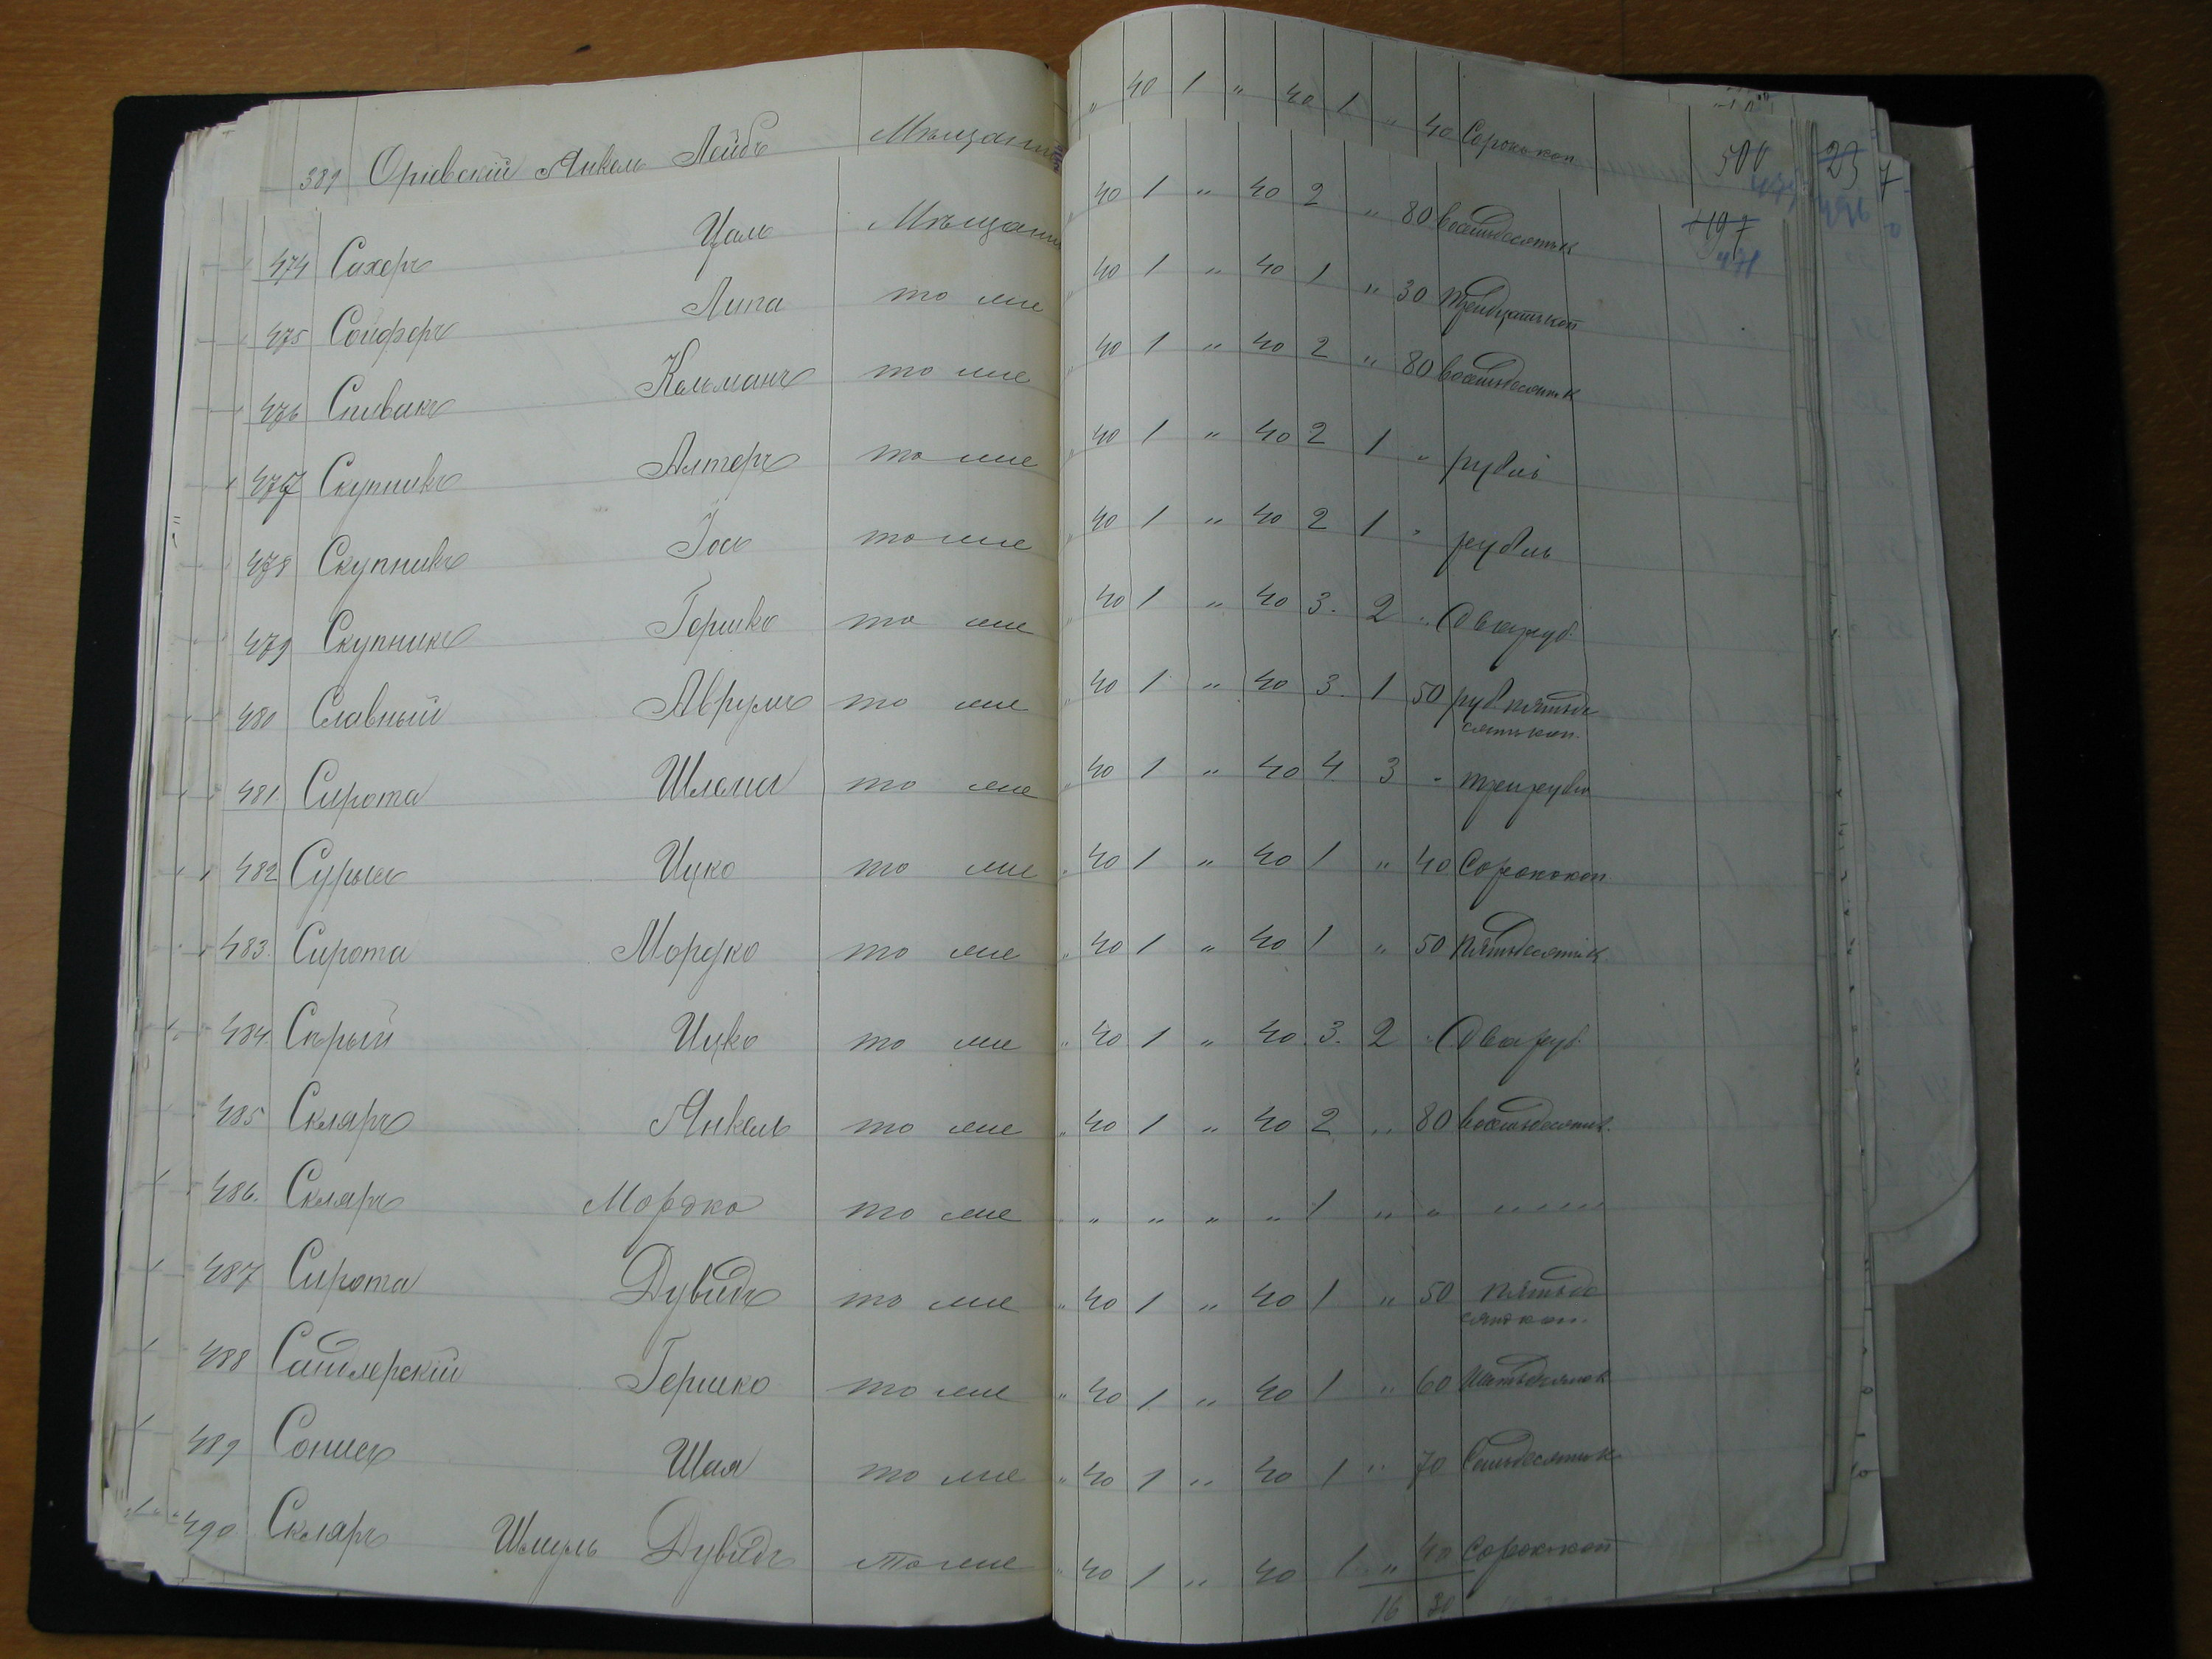 389 Оривскій Янкель Лейбъ Мѣщанинъ " 40 1 " 40 1 " 40 Сорокъ коп 500 23 7
474 Сахеръ Цаль Мѣщанинъ " 40 1 " 40 2 " 80 восемьдесятъ к 497 496
471
475 Сойферъ Липа то же " 40 1 " 40 1 " 30 тридцать коп
476 Спивакъ Кельманъ то же " 40 1 " 40 2 " 80 восемьдесятъ к
477 Скупникъ Алтеръ то же " 40 1 " 40 2 1 " рубль
478 Скупникъ Іось то же " 40 1 " 40 2 1 " рубль
479 Скупникъ Гершко то же " 40 1 " 40 3. 2 " Два руб.
480 Славный Аврумъ то же " 40 1 " 40 3. 1 50 руб пятьде
сятъ коп.
481. Сирота Шлема то же " 40 1 " 40 4 3 " три рубл
482 Сурысь Ицко то же " 40 1 " 40 1 " 40 Сорокъ коп.
483. Сирота Мордко то же " 40 1 " 40 1 " 50 пятьдесятъ к
484 Сѣрый Ицко то же " 40 1 " 40 3. 2 " Два руб.
485 Скляръ Янкель то же " 40 1 " 40 2 " 80 восемьдесятъ к.
486. Скляръ Мордко то же " " " " " 1 " " " " " " "
487 Сирота Дувидъ то же " 40 1 " 40 1 " 50 пятьде
сятъ коп.
488 Гершко то же " 40 1 " 40 1 " 60 Шестьдесятъ к
489 Шая то же " 40 1 " 40 1 " 70 Семьдесятъ к
490 Скляръ Шмуль Дувидъ то же " 40 1 " 40 1 " 40 Сорокъ коп
16 30